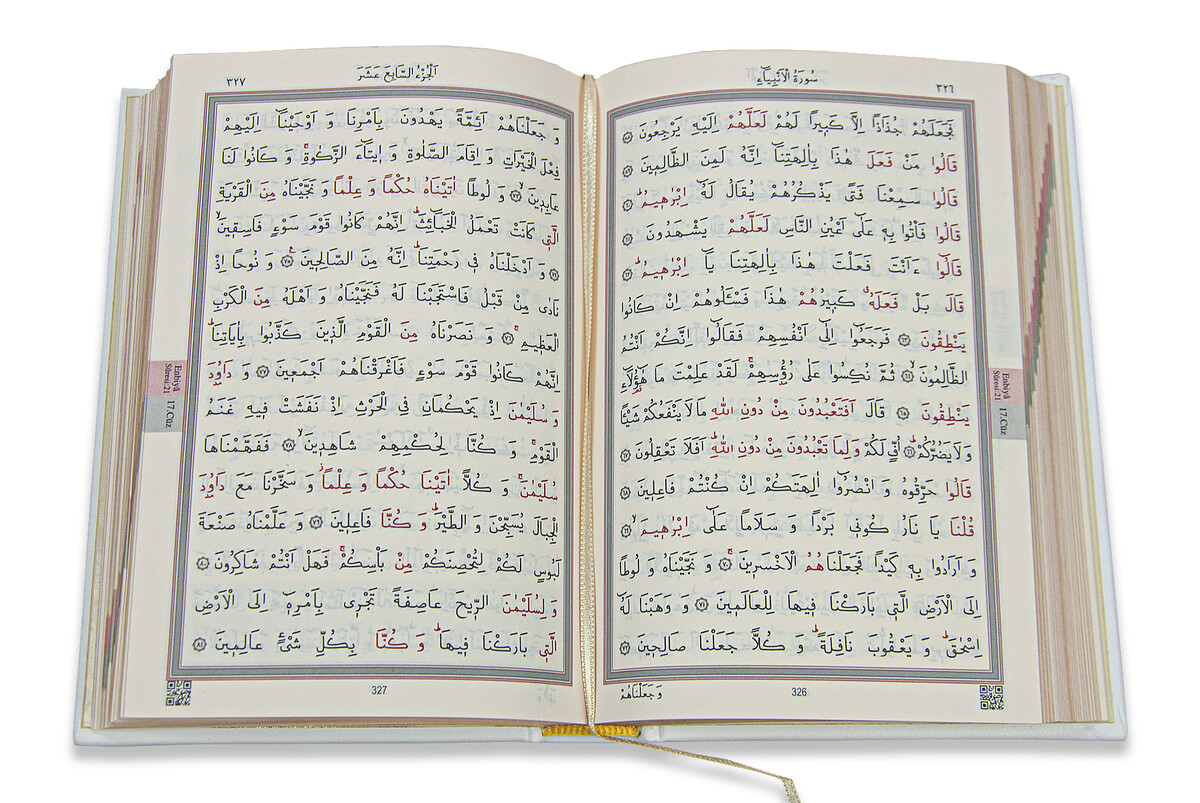 ٣٢٦
سُورَةُ الْاَنْبِيَاءِ
فَجَعَلَهُمْ جُذَاذًا اِلَّا كَبِيرًا لَهُمْ لَعَلَّهُمْ اِلَيْهِ يَرْجِعُونَ ﴿٥٨﴾
قَالُوا مَنْ فَعَلَ هٰذَا بِاٰلِهَتِنَٓا اِنَّهُ لَمِنَ الظَّالِمِينَ ﴿٥٩﴾
قَالُوا سَمِعْنَا فَتًى يَذْكُرُهُمْ يُقَالُ لَهُٓ اِبْرٰهِيمُۜ ﴿٦٠﴾
قَالُوا فَأْتُوا بِهِ عَلٰٓى اَعْيُنِ النَّاسِ لَعَلَّهُمْ يَشْهَدُونَ ﴿٦١﴾
قَالُٓوا ءَاَنْتَ فَعَلْتَ هٰذَا بِاٰلِهَتِنَا يَٓا اِبْرٰهِيمُۜ ﴿٦٢﴾
قَالَ بَلْ فَعَلَهُۗ كَبِيرُهُمْ هٰذَا فَسْـَٔلُوهُمْ اِنْ كَانُوا
يَنْطِقُونَ ﴿٦٣﴾ فَرَجَعُٓوا اِلٰٓى اَنْفُسِهِمْ فَقَالُٓوا اِنَّكُمْ اَنْتُمُ
الظَّالِمُونَۙ ﴿٦٤﴾ ثُمَّ نُكِسُوا عَلٰى رُؤُ۫سِهِمْۚ لَقَدْ عَلِمْتَ مَا هٰٓؤُ۬لَٓاءِ
يَنْطِقُونَ ﴿٦٥﴾ قَالَ اَفَتَعْبُدُونَ مِنْ دُونِ اللّٰهِ مَا لَا يَنْفَعُكُمْ شَيْـًٔا
وَلَا يَضُرُّكُمْۜ ﴿٦٦﴾ اُفٍّ لَكُمْ وَلِمَا تَعْبُدُونَ مِنْ دُونِ اللّٰهِۜ اَفَلَا تَعْقِلُونَ ﴿٦٧﴾
قَالُوا حَرِّقُوهُ وَ انْصُرُٓوا اٰلِهَتَكُمْ اِنْ كُنْتُمْ فَاعِلِينَ ﴿٦٨﴾
قُلْنَا يَا نَارُ كُونِي بَرْدًا وَ سَلَامًا عَلٰٓى اِبْرٰهِيمَۙ ﴿٦٩﴾
وَ اَرَادُوا بِهِ كَيْدًا فَجَعَلْنَاهُمُ الْاَخْسَرِينَۚ ﴿٧٠﴾ وَ نَجَّيْنَاهُ وَ لُوطًا
اِلَى الْاَرْضِ الَّتِي بَارَكْنَا فِيهَا لِلْعَالَمِينَ ﴿٧١﴾ وَ وَهَبْنَا لَهُٓ
اِسْحٰقَۜ وَ يَعْقُوبَ نَافِلَةًۜ وَ كُلًّا جَعَلْنَا صَالِحِينَ ﴿٧٢﴾
وَجَعَلْنَاهُمْ
326
Enbiyâ
Sûresi:21
17.Cüz
اَلْجُزْءُ السَّابِعَ عَشَرَ
٣٢٧
وَ جَعَلْنَاهُمْ اَئِمَّةً يَهْدُونَ بِاَمْرِنَا وَ اَوْحَيْنَٓا اِلَيْهِمْ
فِعْلَ الْخَيْرَاتِ وَ اِقَامَ الصَّلٰوةِ وَ اِيتَٓاءَ الزَّكٰوةِۚ وَ كَانُوا لَنَا
عَابِدِينَۙ ﴿٧٣﴾ وَ لُوطًا اٰتَيْنَاهُ حُكْمًا وَ عِلْمًا وَ نَجَّيْنَاهُ مِنَ الْقَرْيَةِ
الَّتِي كَانَتْ تَعْمَلُ الْخَبَٓائِثَۜ اِنَّهُمْ كَانُوا قَوْمَ سَوْءٍ فَاسِقِينَۙ
﴿٧٤﴾ وَ اَدْخَلْنَاهُ فِي رَحْمَتِنَاۜ اِنَّهُ مِنَ الصَّالِحِينَ۟ ﴿٧٥﴾ وَ نُوحًا اِذْ
نَادٰى مِنْ قَبْلُ فَاسْتَجَبْنَا لَهُ فَنَجَّيْنَاهُ وَ اَهْلَهُ مِنَ الْكَرْبِ
الْعَظِيمِۚ ﴿٧٦﴾ وَ نَصَرْنَاهُ مِنَ الْقَوْمِ الَّذِينَ كَذَّبُوا بِاٰيَاتِنَاۜ
اِنَّهُمْ كَانُوا قَوْمَ سَوْءٍ فَاَغْرَقْنَاهُمْ اَجْمَعِينَ ﴿٧٧﴾ وَ دَاوُ۫دَ
وَ سُلَيْمٰنَ اِذْ يَحْكُمَانِ فِي الْحَرْثِ اِذْ نَفَشَتْ فِيهِ غَنَمُ
الْقَوْمِۚ وَ كُنَّا لِحُكْمِهِمْ شَاهِدِينَۙ ﴿٧٨﴾ فَفَهَّمْنَاهَا
سُلَيْمٰنَۚ وَ كُلًّا اٰتَيْنَا حُكْمًا وَ عِلْمًاۘ وَ سَخَّرْنَا مَعَ دَاوُ۫دَ
الْجِبَالَ يُسَبِّحْنَ وَ الطَّيْرَۜ وَ كُنَّا فَاعِلِينَ ﴿٧٩﴾ وَ عَلَّمْنَاهُ صَنْعَةَ
لَبُوسٍ لَكُمْ لِتُحْصِنَكُمْ مِنْ بَأْسِكُمْۚ فَهَلْ اَنْتُمْ شَاكِرُونَ ﴿٨٠﴾
وَ لِسُلَيْمٰنَ الرِّيحَ عَاصِفَةً تَجْرِي بِاَمْرِهِٓ اِلَى الْاَرْضِ
الَّتِي بَارَكْنَا فِيهَاۜ وَ كُنَّا بِكُلِّ شَيْءٍ عَالِمِينَ ﴿٨١﴾
327
Enbiyâ
Sûresi:21
17.Cüz